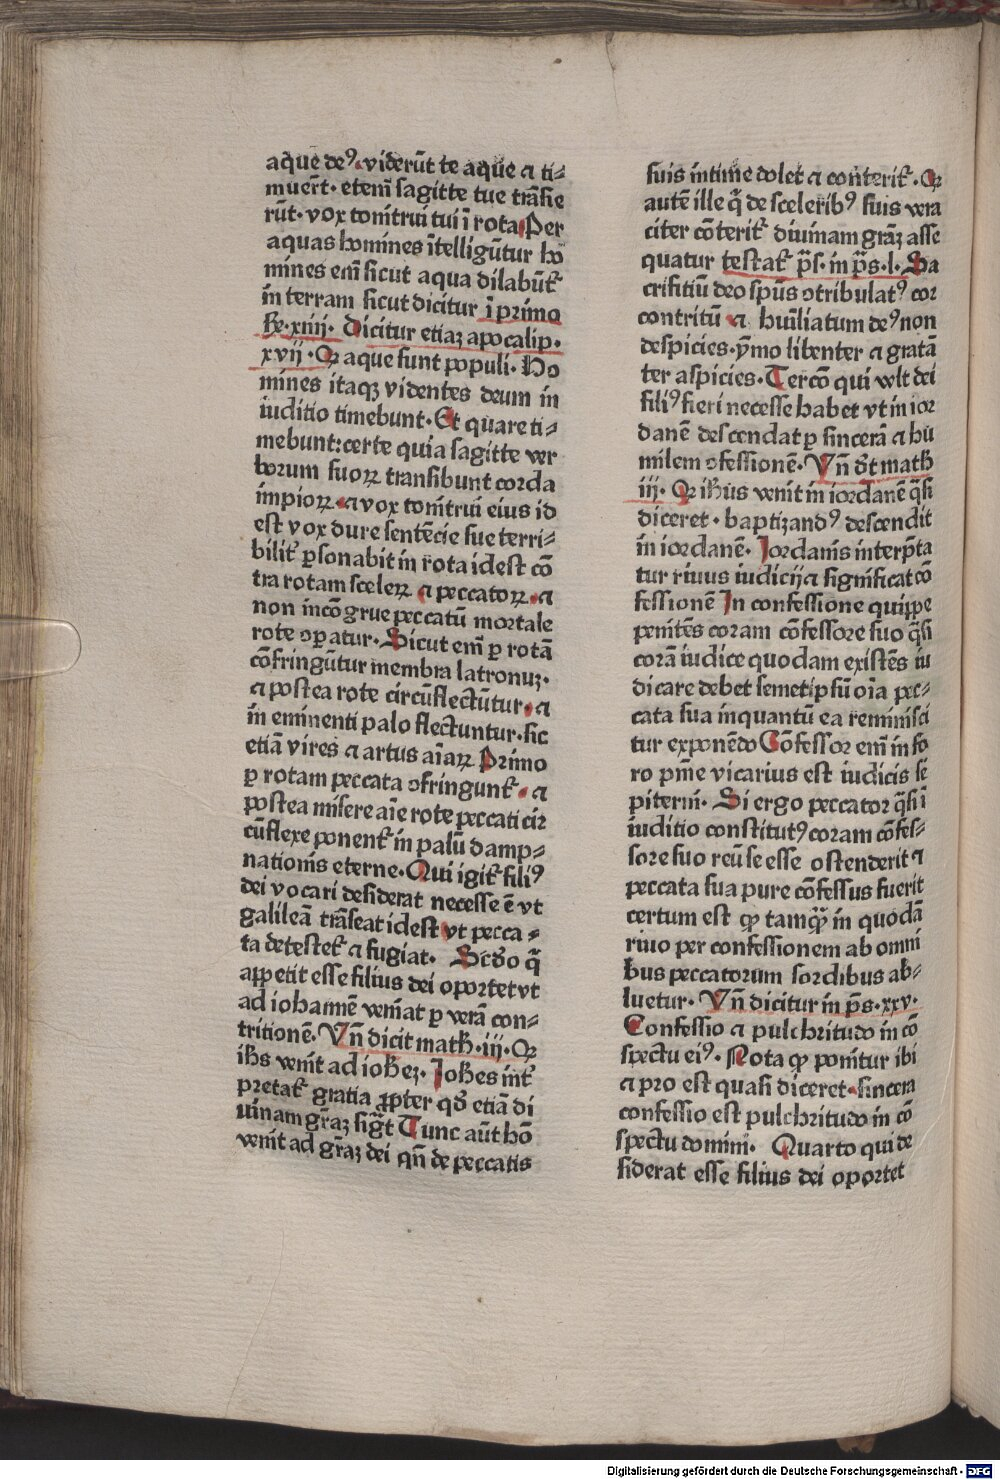 aque deꝰ. viderūt te aque ⁊ ti⸗
muer̄t. eteni̅ sagitte tue trāsie
rūt. vox tonitrui tui ī rota Per
aquas homines ītelligūtur ho
mines eni̅ sicut aqua dilabūt᷑
in terram sicut dicitur ī primo
Re. xiiii. Dicitur etiaꝫ apocalip.
xvii. Qꝛ aque sunt populi. Ho
mines itaqꝫ videntes deum in
iuditio timebunt. Et quare ti⸗
mebunt: certe quia sagitte ver
borum suoꝝ transibunt corda
impioꝝ. ⁊ vox tonitrui eius id
est vox dure sentēcie sue terri⸗
bilit᷑ ꝑsonabit in rota idest cō
tra rotam sceleꝝ ⁊ peccatoꝝ. ⁊
non incōgrue peccatū mortale
rote oꝑatur. Sicut eni̅ ꝑ rotā
cōfringūtur membra latronuꝫ.
⁊ postea rote circūflectūtur. ⁊
in eminenti palo flectuntur. sic
etiā vires ⁊ artus aīaꝝ Primo
ꝑ rotam peccata ↄfringunt᷑. ⁊
postea misere aīe rote peccati cir
cūflexe ponent᷑ in palū damp⸗
nationis eterne. Qui igit᷑ filiꝰ
dei vocari desiderat necesse ē vt
galileā trāseat idest vt pecca⸗
ta detestet᷑ ⁊ fugiat. Scd̄o q̄
appetit esse filius dei oportet vt
ad iohannē veniat ꝑ verā con⸗
tritionē. Vn̄ dicit math̄. iii. Qꝛ
ih̄s venit ad ioh̄eꝫ. Joh̄es int᷑
pretat᷑ gratia ꝓpter qd̄ etiā di
uinam gr̄aꝫ sigt̄ Tunc aūt hō
venit ad gr̄aꝫ dei qn̄ de peccatis
suis intime dolet ⁊ conterit᷑. Qꝛ
autē ille q̄ de sceleribꝰ suis vera
citer cōterit᷑ diuinam gr̄aꝫ asse
quatur testat᷑ p̄s. in p̄s. l. Sa
crifitiū deo spūs ↄtribulatꝰ cor
contritū ⁊ hūiliatum deꝰ non
despicies. ymo libenter ⁊ gratā
ter aspicies. Tercō qui velt dei
filiꝰ fieri necesse habet vt in ior
danē descendat ꝑ sincerā ⁊ hu
milem ↄfessionē. Vn̄ dr̄t math̄
iii. Qꝛ ih̄us venit in iordanē q̄si
diceret. baptizandꝰ descendit
in iordanē. Jordanis interp̄ta
tur riuus iudicij ⁊ significat cō
fessionē Jn confessione quippe
penitēs coram cōfessore suo q̄si
corā iudice quodam existēs iu
dicare debet semetipsū oīa pec⸗
cata sua inquantū ea reminisci
tur exponēdo Cōfessor eni̅ in fo
ro pn̄ie vicarius est iudicis sē
piterni. Si ergo peccator q̄si ī
iuditio constitutꝰ coram cōfes⸗
sore suo reū se esse ostenderit ⁊
peccata sua pure cōfessus fuerit
certum est ꝙ tamꝙ̄ in quodā
riuo per confessionem ab omni
bus peccatorum sordibus ab⸗
luetur. Vn̄ dicitur in p̄s. xxv.
Confessio ⁊ pulchritudo in cō
spectu eiꝰ. Nota ꝙ ponitur ibi
⁊ pro est quasi diceret. sincera
confessio est pulchritudo in cō
spectu domini. Quarto qui de
siderat esse filius dei oportet
Digitalisierung gefördert durch die Deutsche Forschungsgemeinschaft - DFG